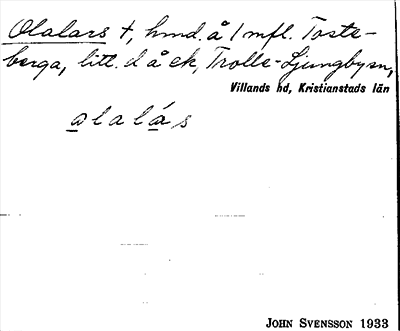 Olalars †, hmd. å 1 mfl. Toste-
berga, litt. d å ek, Trolle-Ljungbysn,
Villands hd, Kristianstads län
alalás
JOHN SVENSSON 1933